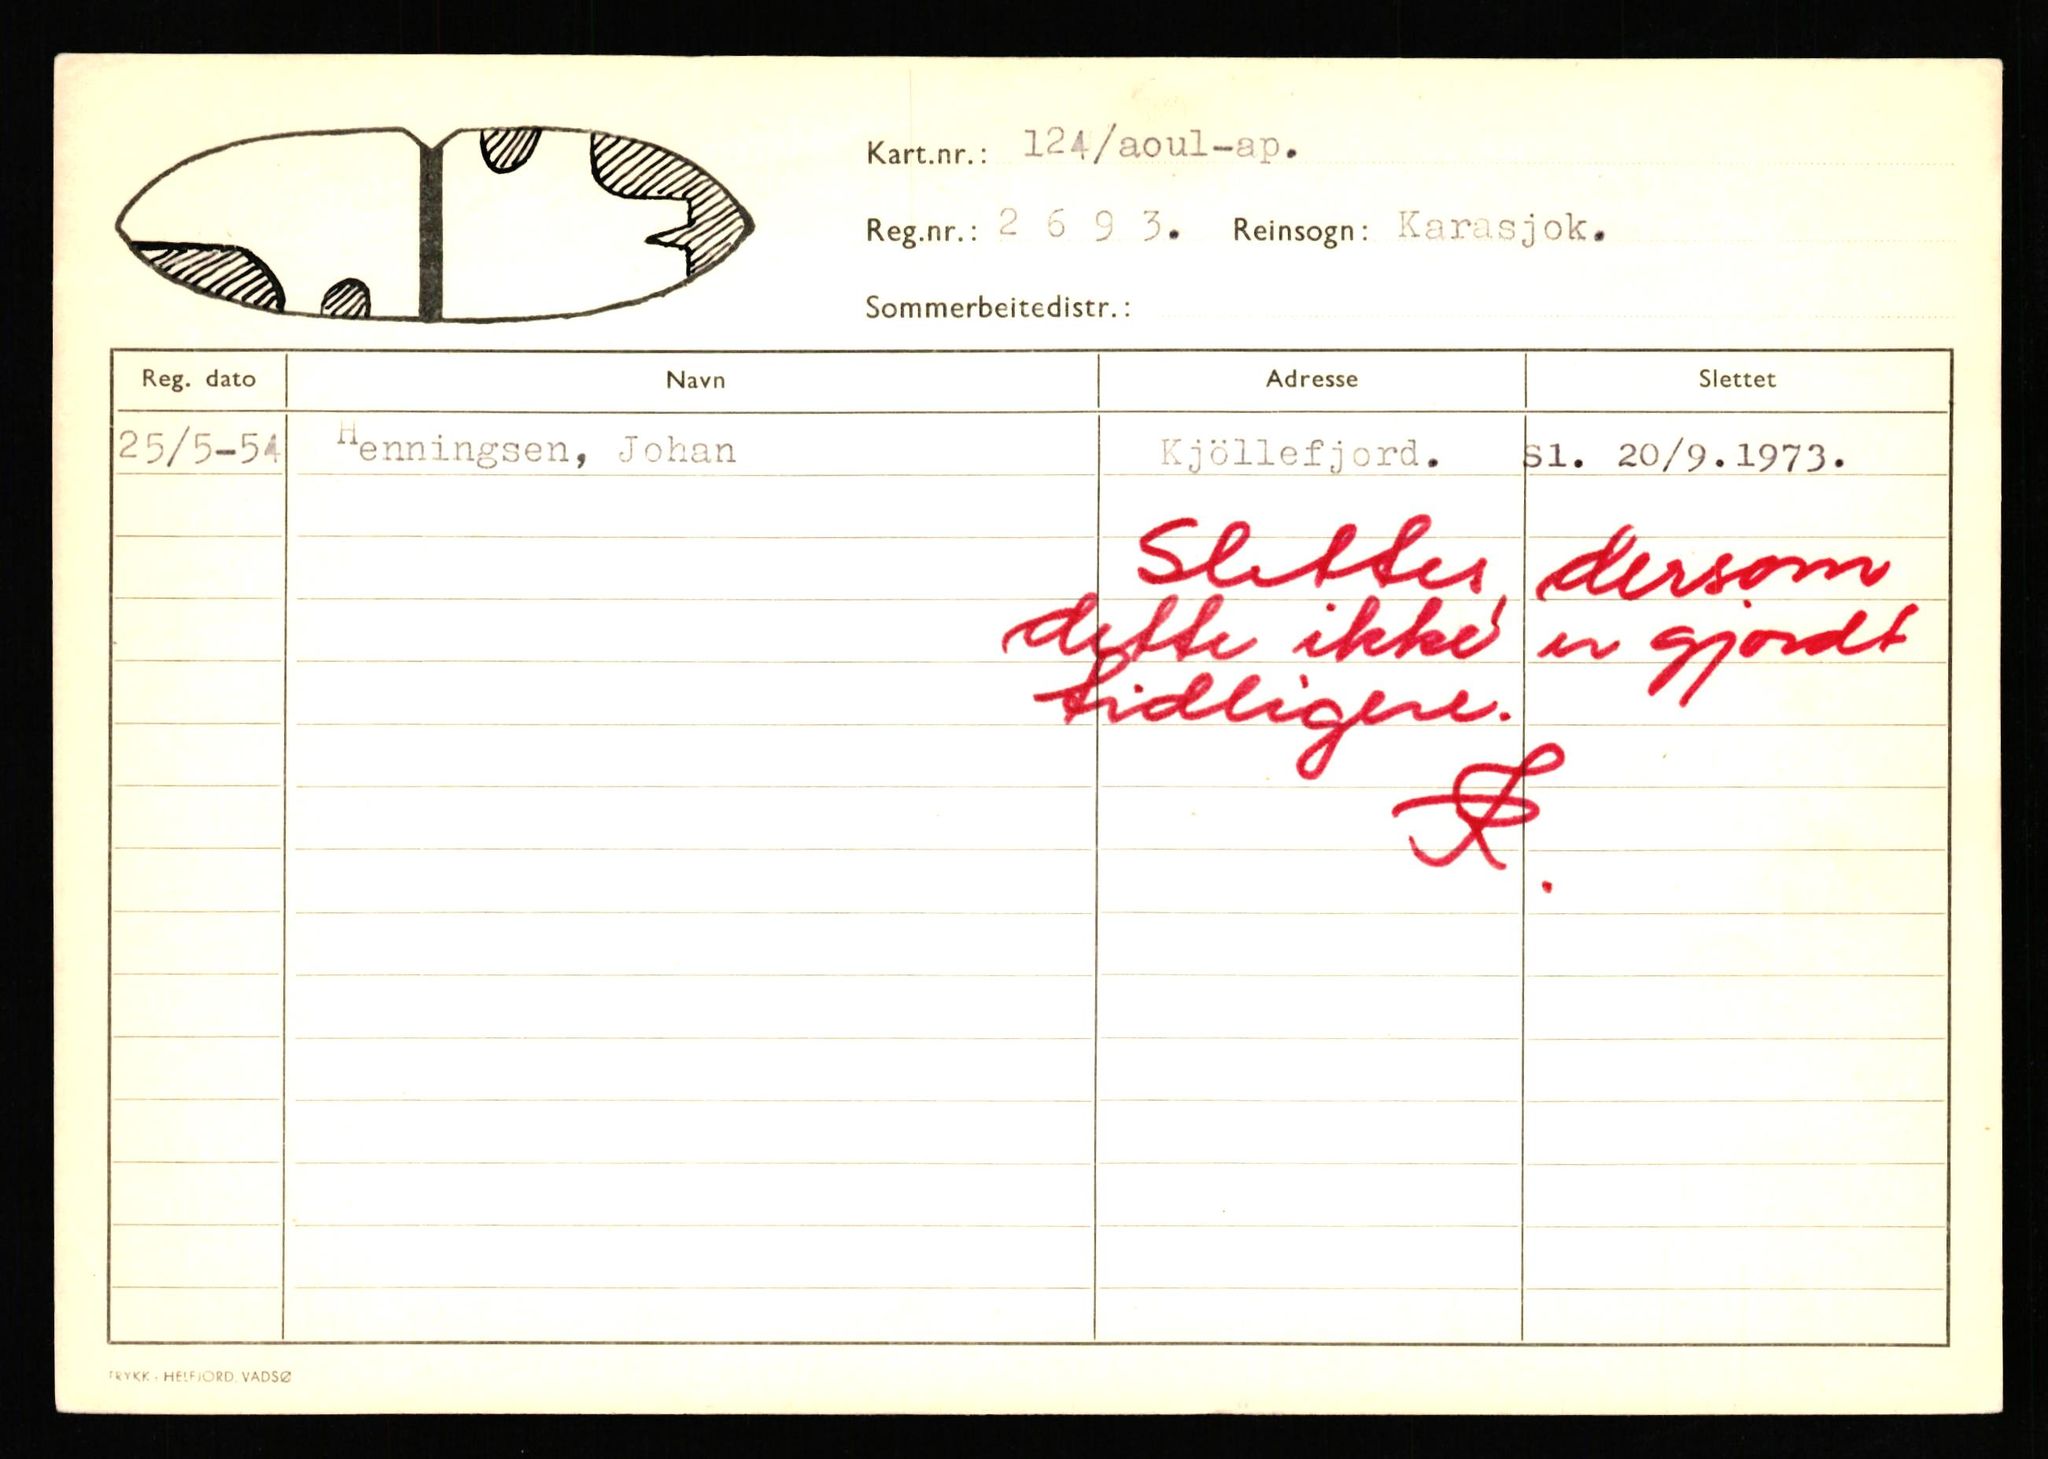 Kart.nr.: 124/aoul-ap.
Reg.nr.: 2 6 9 3. Reinsogn: Karasjok.
Sommerbeitedistr.:
Reg. dato Navn Adresse Slettet
25/5-54 Henningsen, Johan Kjöllefjord. Sl. 20/9.1973.
Slettes, dersom
dette ikke er gjordt
tidligere.
TRYKK : HELFJORD, VADSØ